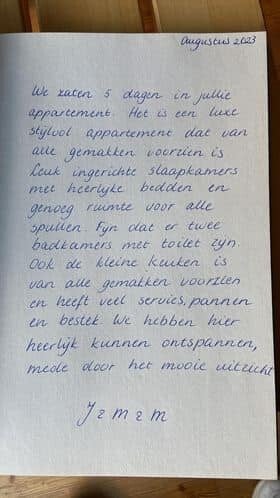 Augustus 2023
We zaten 5 dagen in jullie
appartement. Het is een luxe
stijlvol appartement dat van
alle gemakken voorzien is
Leuk ingerichte slaapkamers
met heerlijke bedden en
genoeg ruimte voor alle
spullen. Fijn dat er twee
badkamers met toilet zijn.
Ook de kleine keuken is
van alle gemakken voorzien
en heeft veel servies, pannen
en bestek. We hebben hier
heerlijk kunnen ontspannen,
mede door het mooie uitzicht